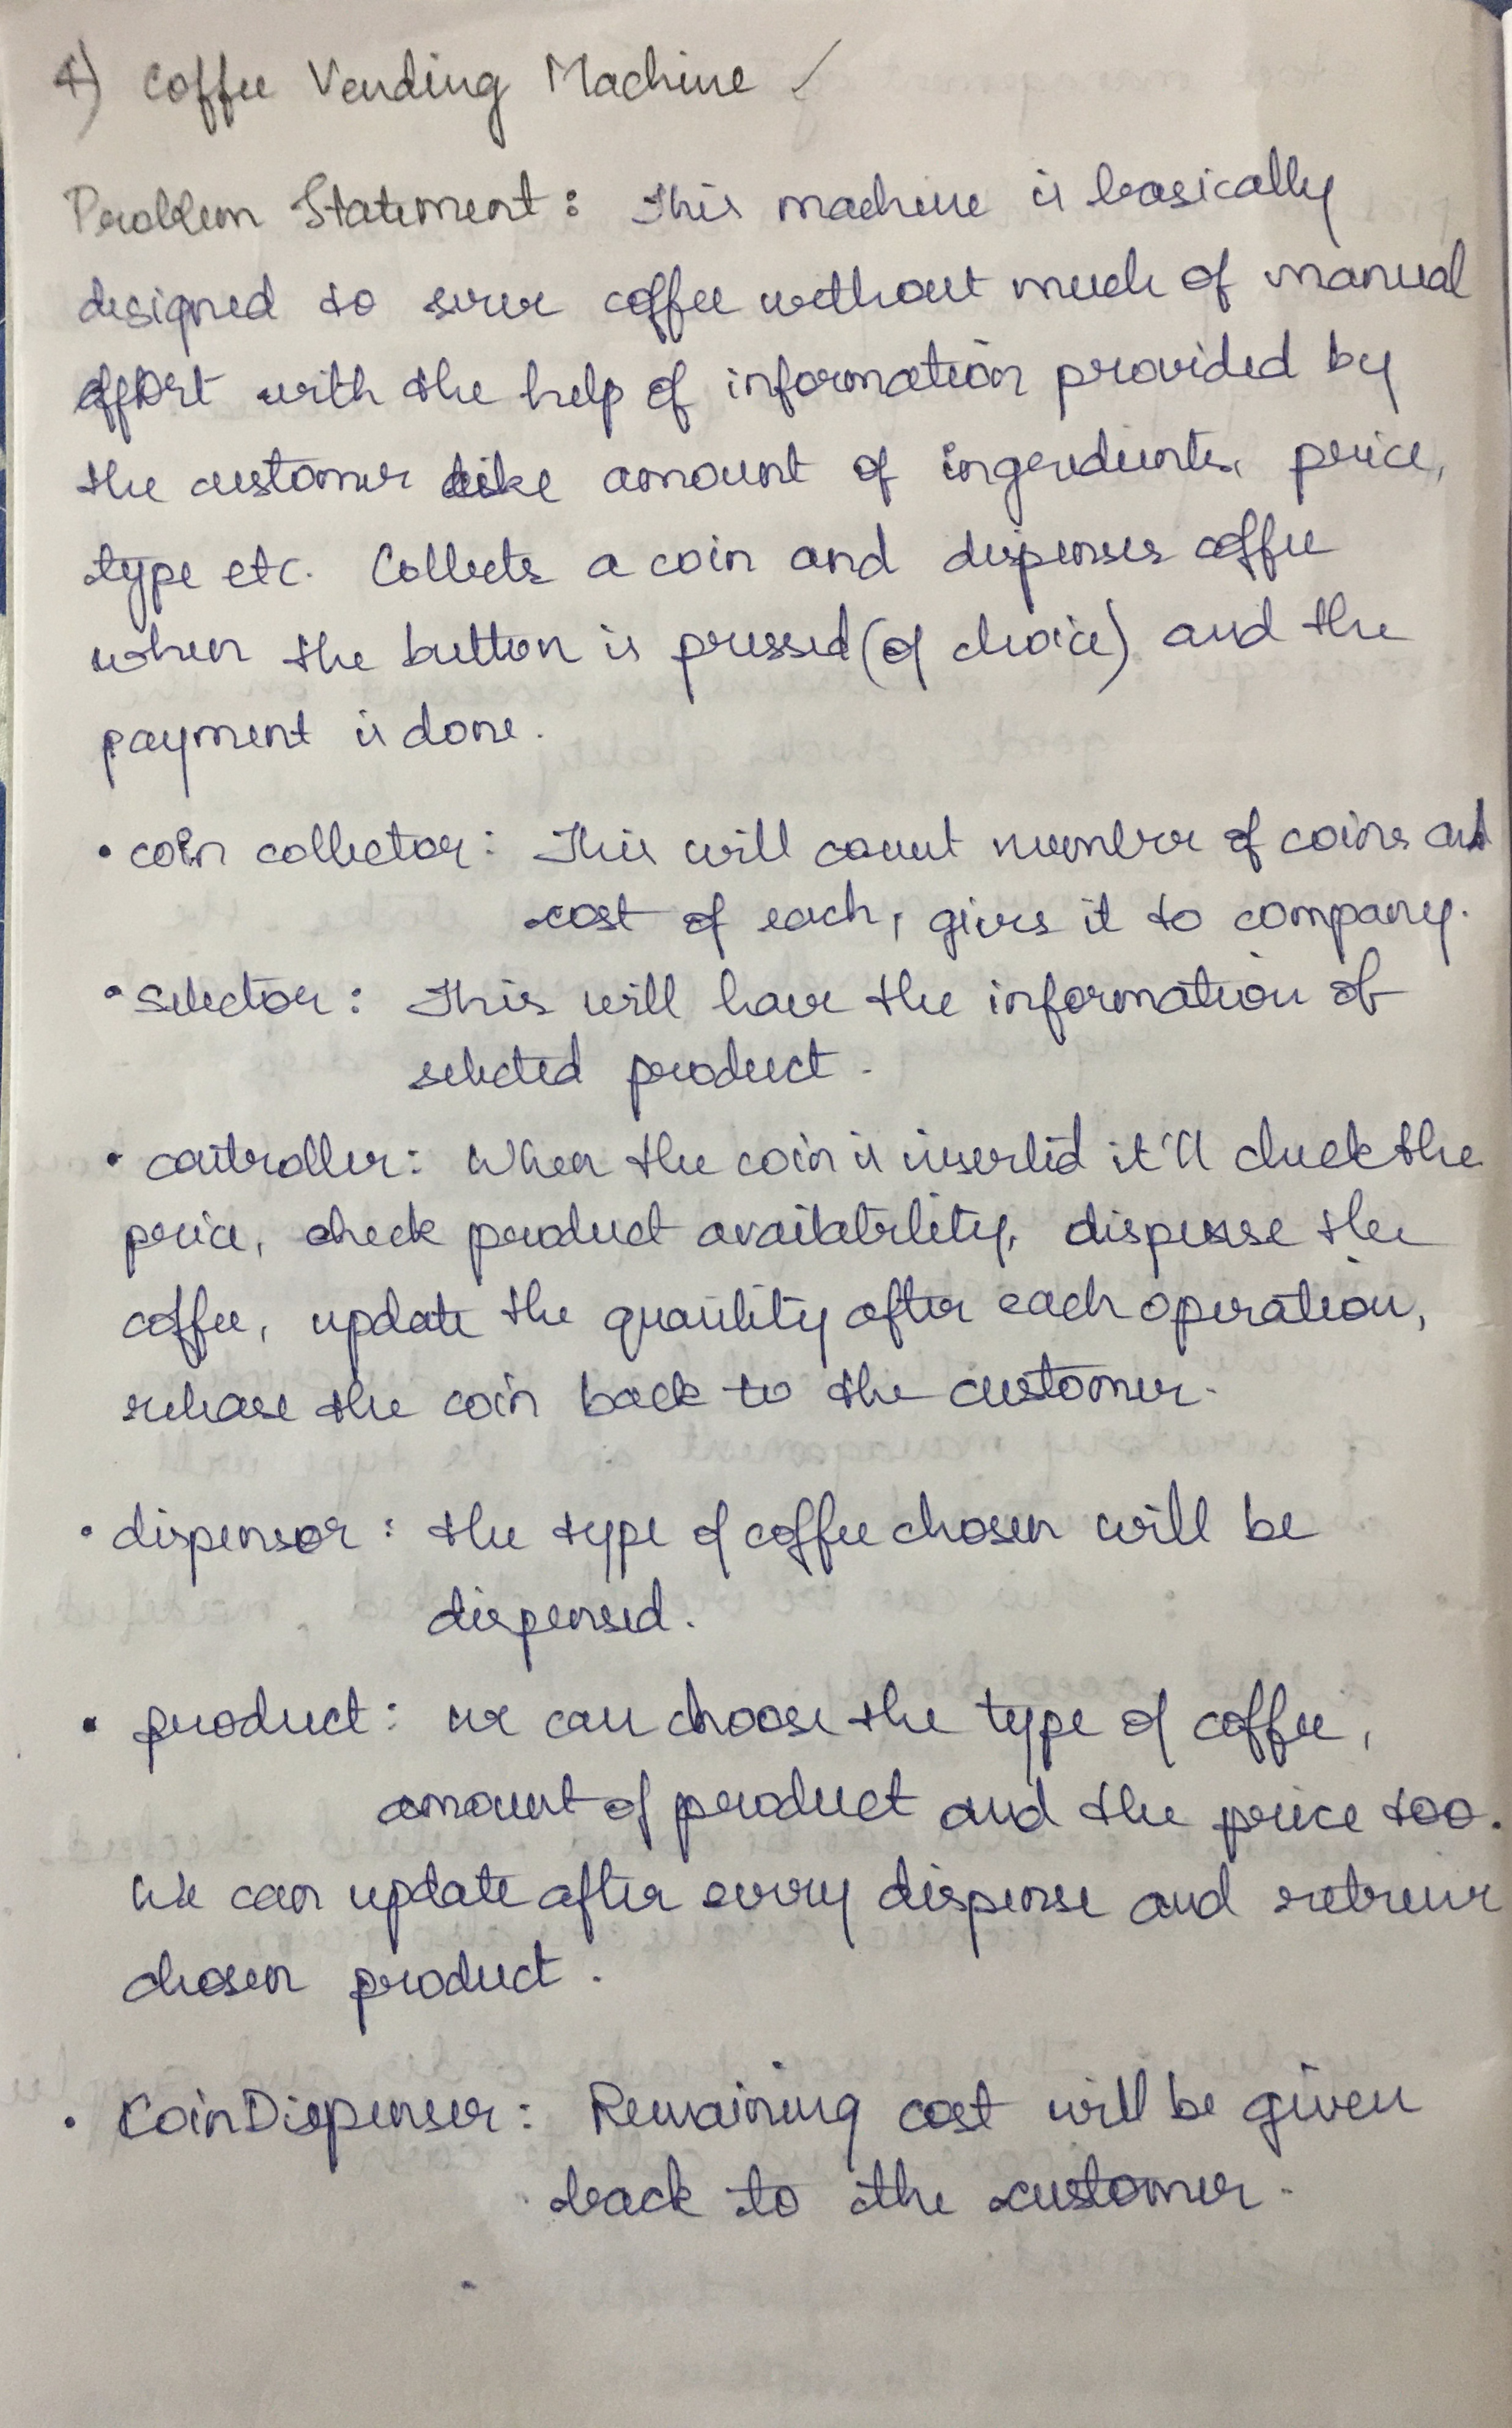 4) Coffee Vending Machine ✓
Problem Statement: This machine is basically
designed to serve coffee without much of manual
effort with the help of information provided by
the customer like amount of ingredients, price,
type etc. Collects a coin and dispenses coffee
when the button is pressed (of choice) and the
payment is done.
• coin collector: This will count number of coins and
cost of each, gives it to company.
• Selector: This will have the information of
selected product.
• controller: When the coin is inserted it'll check the
price, check product availability, dispense the
coffee, update the quantity after each operation,
release the coin back to the customer.
• dispensor: the type of coffee chosen will be
dispensed.
• product: we can choose the type of coffee,
amount of product and the price too.
We can update after every dispense and retreive
chosen product.
• CoinDispenser: Remaining cost will be given
back to the customer.